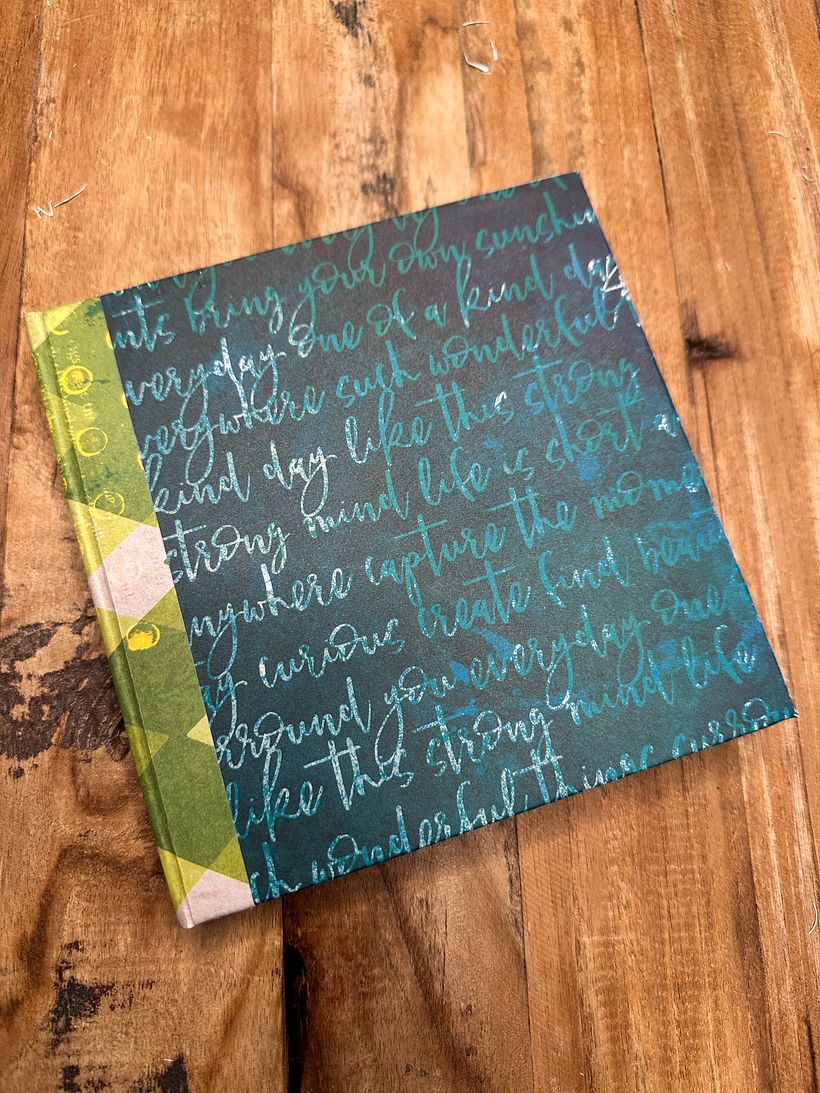 nts bring your own sunshin
veryday one of a kind day
verywhere such wonderful
kind day like this strong
strong mind life is short a
nywhere capture the mome
ay curious create find beau
rround you everyday one
like this strong mind life
ch wonderful things surro